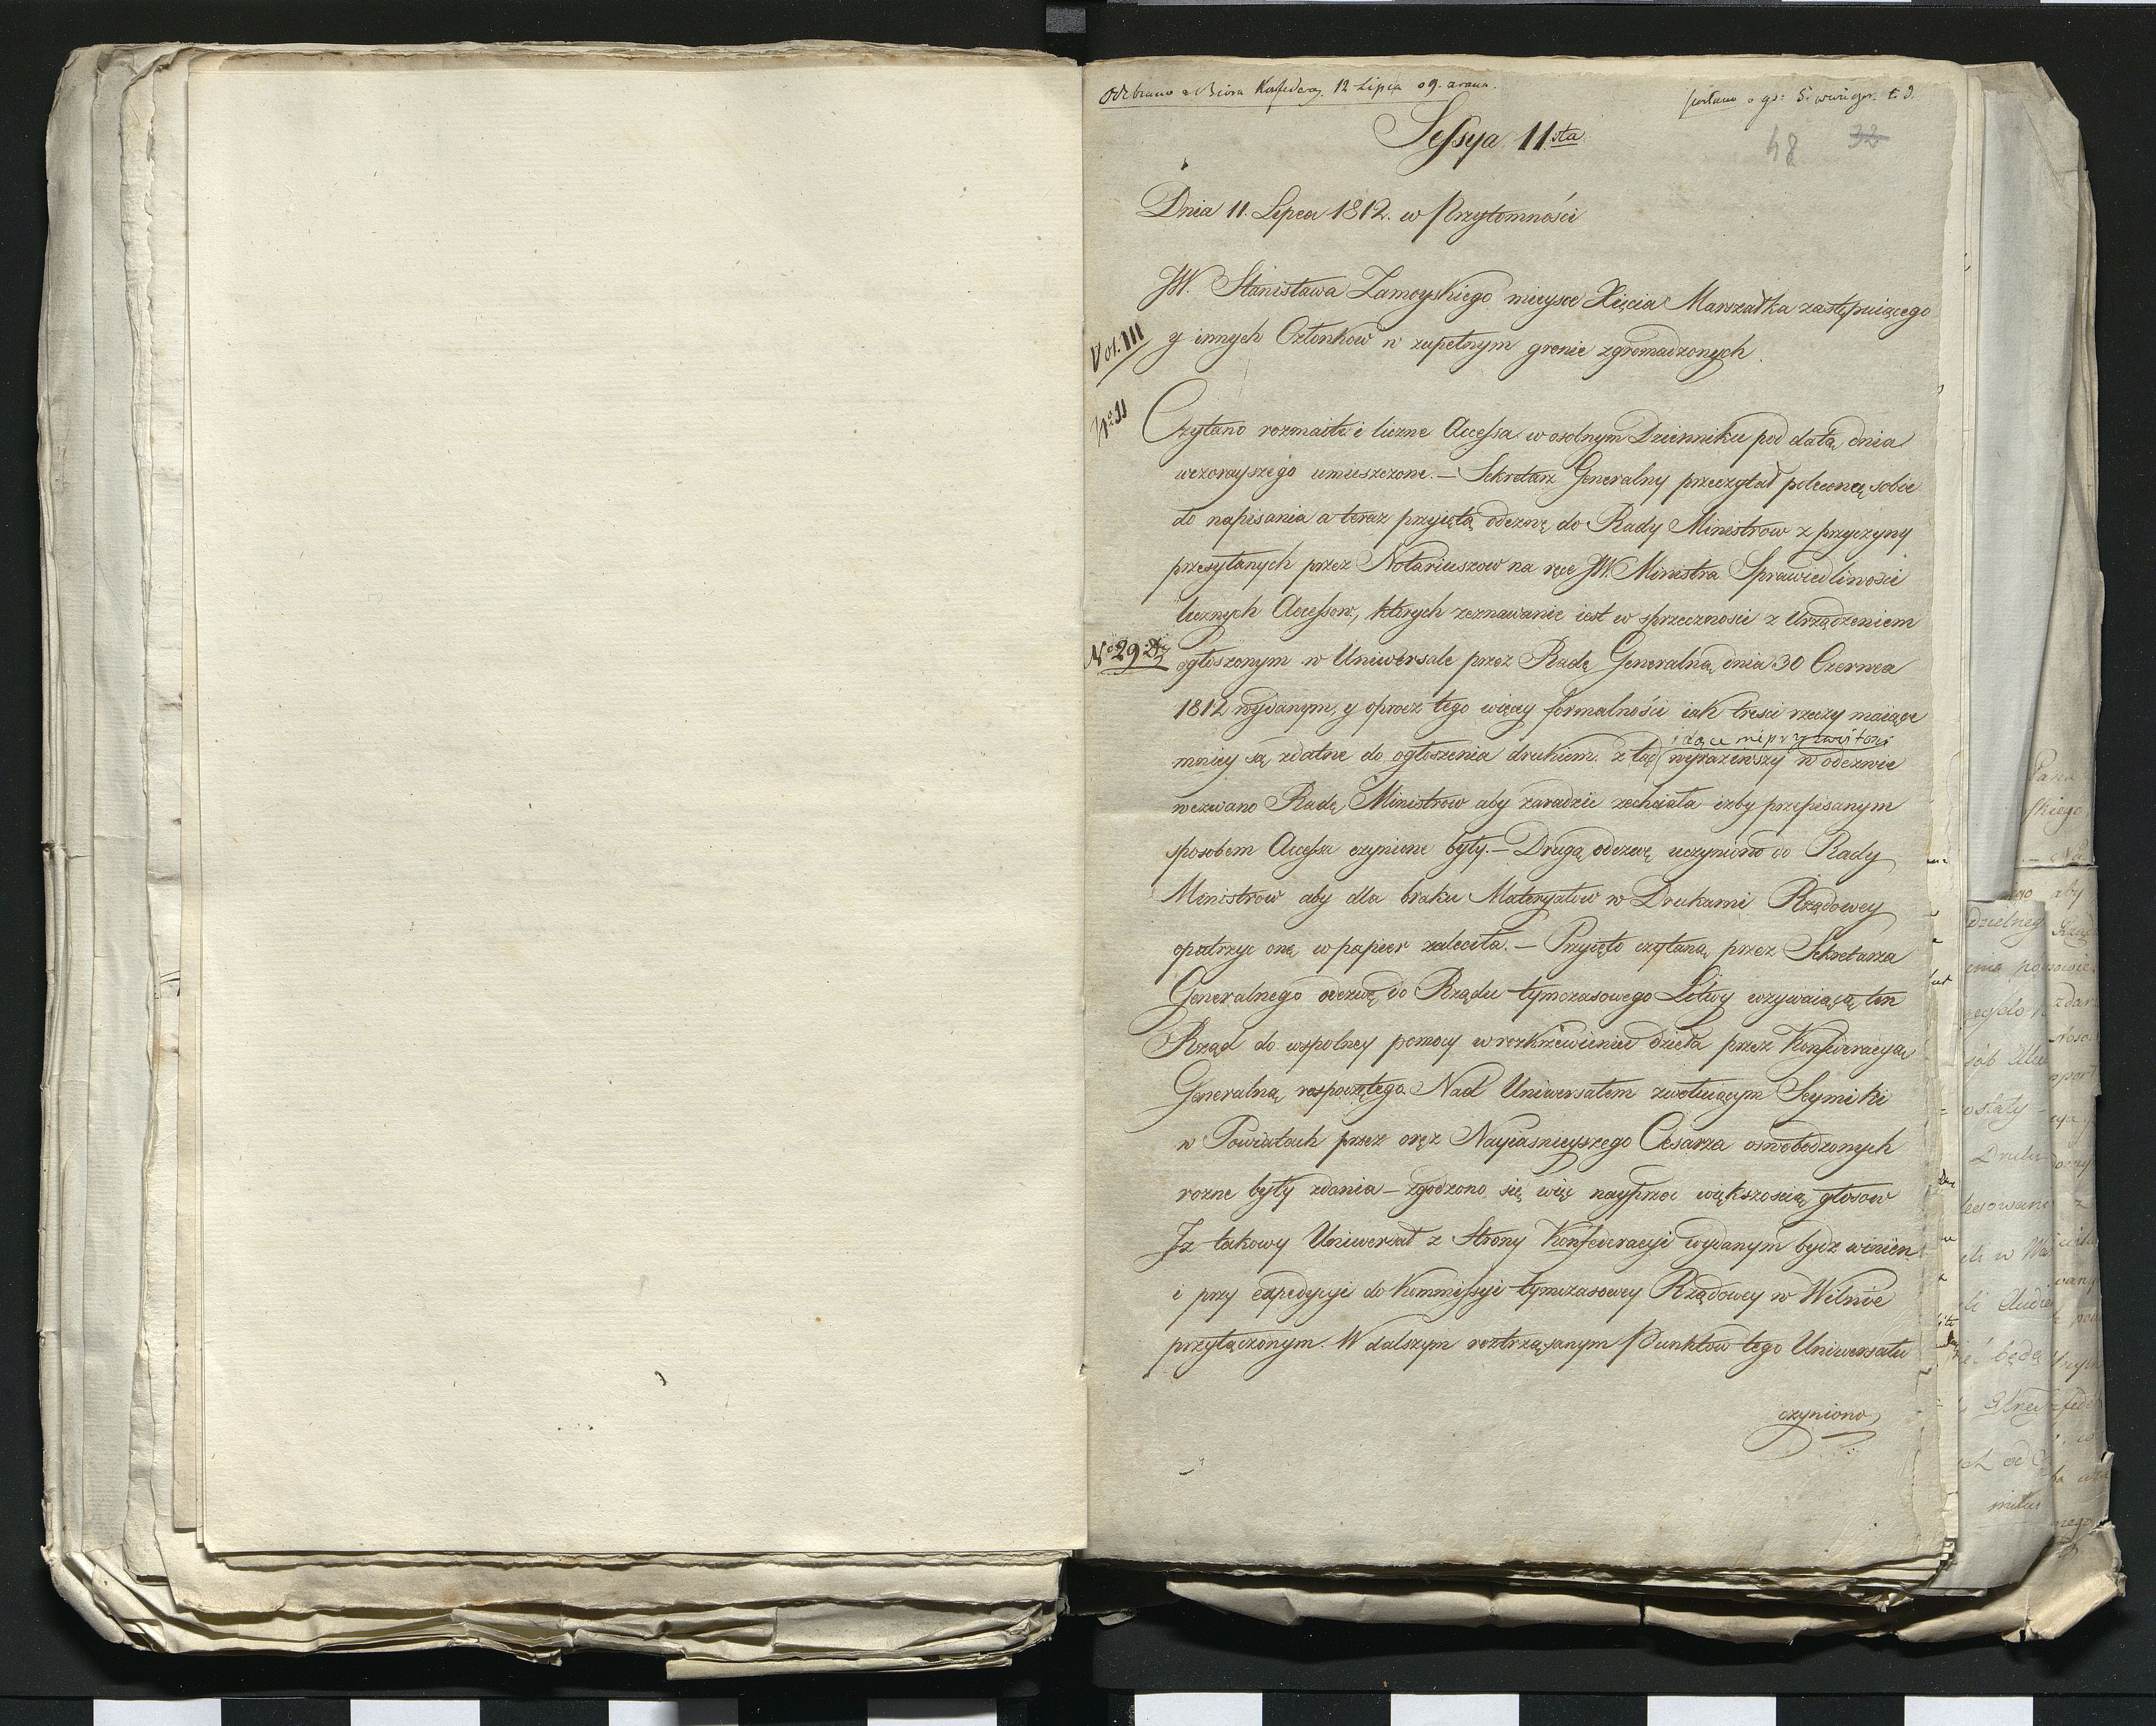 Odebrano z Biura Konfederacyi. 12 Lipca o 9. zrana.
48 32
Sessya 11.sta
Dnia 11. Lipca 1812. w Przytomności
JW. Stanisława Zamoyskiego mieysce Xięcia Marszałka zastępuiącego
Vol. III
y innych Członkow w zupełnym gronie zgromadzonych.
Nº 11
Czytano rozmaite i liczne Accessa w osobnym Dzienniku pod datą dnia
wczorayszego umieszczone. — Sekretarz Generalny przeczytał poleconą sobie
do napisania a teraz przyiętą odezwę do Rady Ministrow z przyczyny
przesyłanych przez Notariuszow na ręce JW. Ministra Sprawiedliwości
licznych Accessow, ktorych zeznawanie iest w sprzeczności z Urządzeniem
Nº 29
ogłoszonym w Uniwersale przez Radę Generalną dnia 30 Czerwca
1812 wydanym, y oprocz tego więcy formalności iak treści rzeczy maiące
mniey są zdatne do ogłoszenia drukiem. z tąd wyraziwszy w odezwie
idące nieprzyzwitości
wezwano Radę Ministrow aby zaradzić zechciała izby przepisanym
sposobem Accessa czynione były. — Drugą odezwę uczyniono do Rady
Ministrow aby dla braku Materyałow w Drukarni Rządowey
opatrzyc onę w papier zaleciła. — Przyięto czytaną przez Sekretarza
Generalnego odezwę do Rządu tymczasowego Litwy wzywaiącą ten
Rząd do wspolney pomocy w rozkrzewieniu dzieła przez Konfederacyą
Generalną rospoczętego. Nad Uniwersałem zwołuiącym Seymiki
w Powiatach przez oręż Nayiasnieyszego Cesarza oswobodzonych
rozne były zdania — zgodzono się więc nayprzod większością głosow
Iz takowy Uniwersał z Strony Konfederacyi wydanym bydz winien
i przy expedycyi do Kommissyi tymczasowey Rządowey w Wilnie
przyłączonym. W dalszym roztrząsanym Punktow tego Uniwersału
czyniono